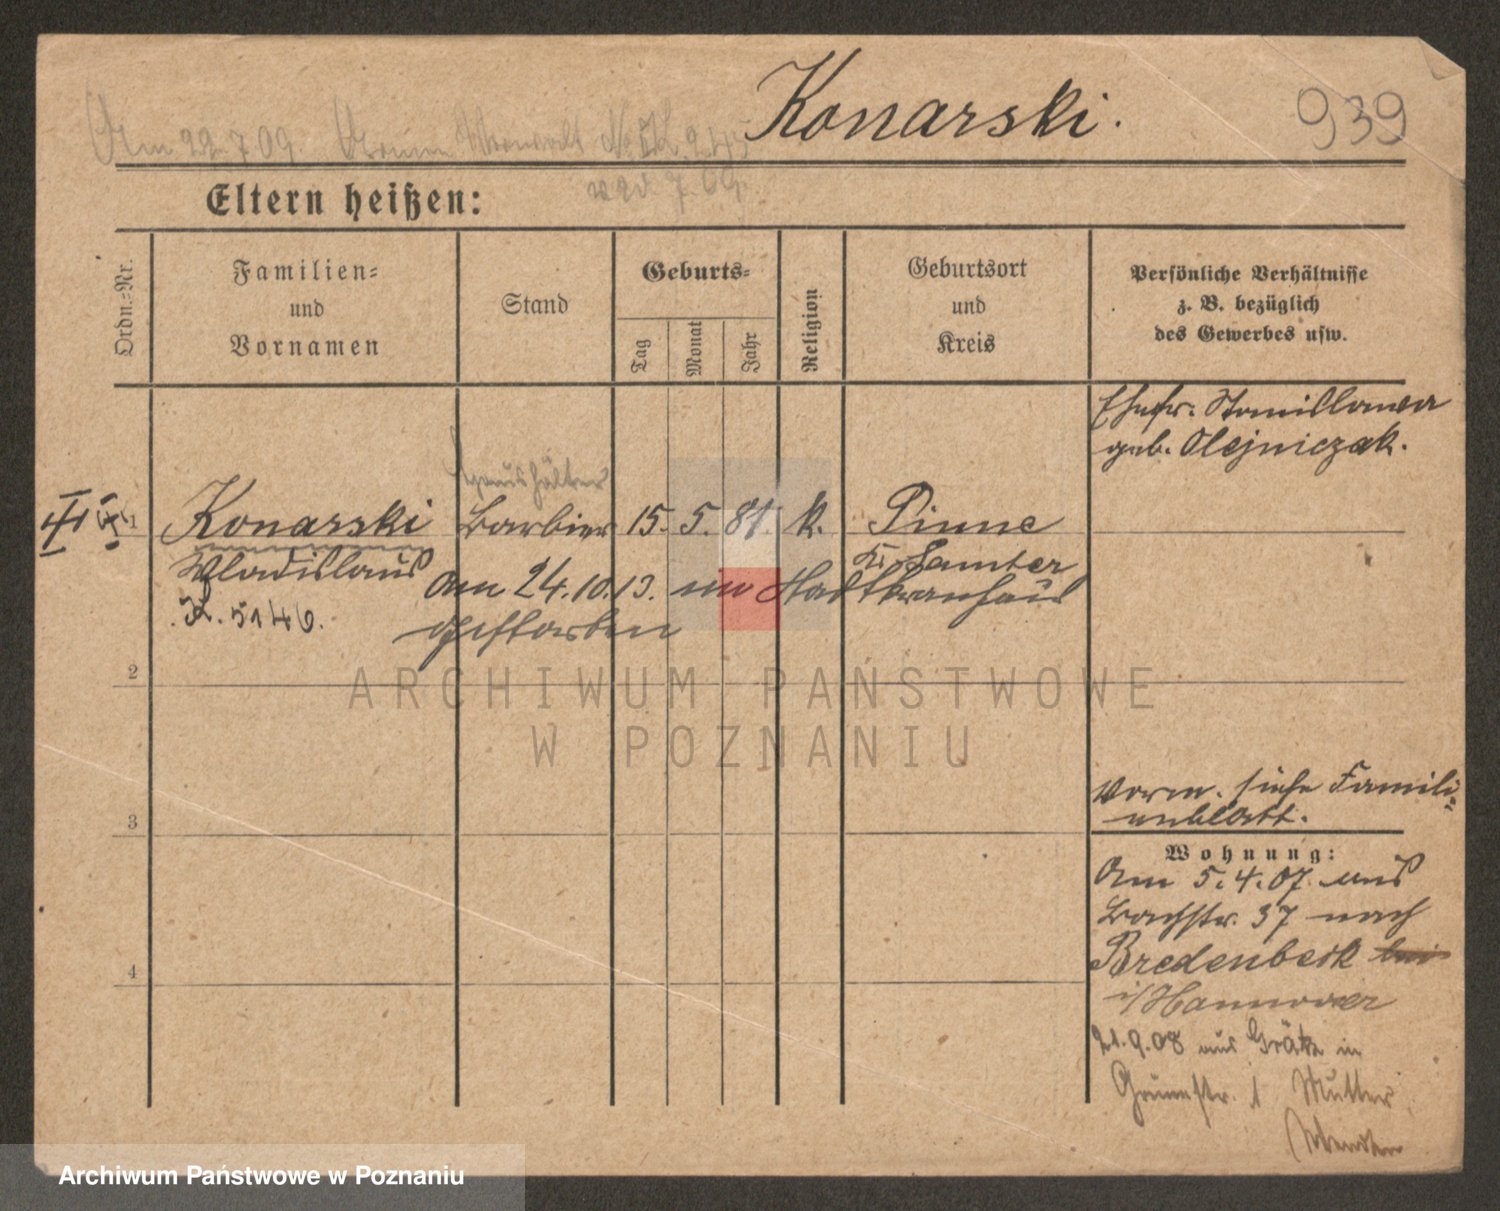 Konarski.
939
Am 22.7.09.
7.09.
Eltern heißen:
Ordn.=Nr.
Familien=
und
Vornamen
Stand
Geburts=
Tag
Monat
Jahr
Religion
Geburtsort
und
Kreis
Persönliche Verhältnisse
z. B. bezüglich
des Gewerbes usw.
Ehefr. Stanislawa
geb. Olejniczak.
Haushälter
1 Konarski Barbier 15. 5. 81. k. Pinne
Wladislaus Kr. Samter
K. 5146.
Am 24.10.13. im Stadtkrankhaus
gestorben
2
3
4
Verm. siehe Famili=
enblatt.
Wohnung:
Am 5.4.07. aus
Bachstr. 37 nach
Bredenbeck bei
i/Hannover
21.9.08 aus Grätz in
Grünestr. 1 Mutter
ARCHIWUM PAŃSTWOWE
W POZNANIU
Archiwum Państwowe w Poznaniu